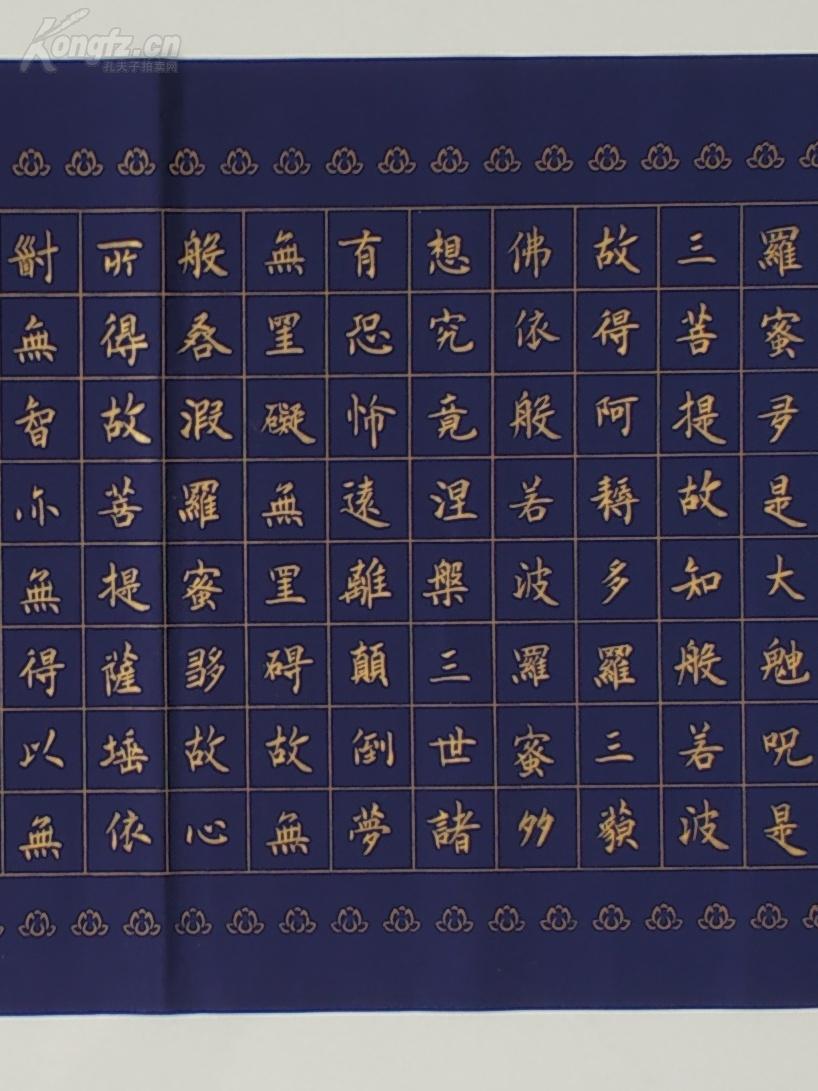 無智亦無得以無
所得故菩提薩埵依
般若波羅蜜多故心
無罣礙無罣碍故無
有恐怖遠離顛倒夢
想究竟涅槃三世諸
佛依般若波羅蜜多
故得阿耨多羅三藐
三菩提故知般若波
羅蜜多是大䰠呪是
Kongfz.cn
孔夫子拍卖网